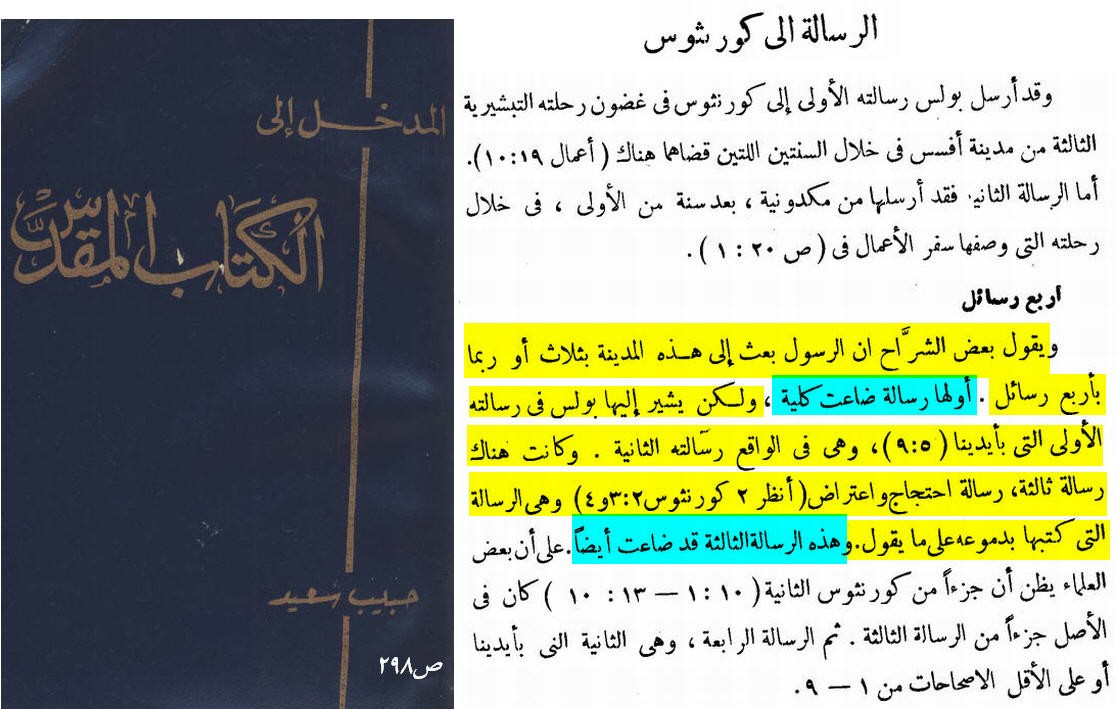 المدخل إلى
الكتاب المقدس
حبيب سعيد
ص٢٩٨
الرسالة الى كورنثوس
وقد أرسل بولس رسالته الأولى إلى كورنثوس فى غضون رحلته التبشيرية
الثالثة من مدينة أفسس فى خلال السنتين اللتين قضاهما هناك ( أعمال ١٩:١٠).
أما الرسالة الثانية فقد أرسلها من مكدونية ، بعد سنة من الأولى ، فى خلال
رحلته التى وصفها سفر الأعمال فى ( ص ٢٠ : ١ ) .
اربع رسائل
ويقول بعض الشرَّاح ان الرسول بعث إلى هـذه المدينة بثلاث أو ربما
بأربع رسائل . أولها رسالة ضاعت كلية ، ولـكن يشير إليها بولس فى رسالته
الأولى التى بأيدينا ( ٥:٩ ) ، وهى فى الواقع رسالته الثانية . وكانت هناك
رسالة ثالثة، رسالة احتجاج واعتراض ( أنظر ٢ كورنثوس ٢:٣و٤) وهى الرسالة
التى كتبها بدموعه على ما يقول . وهذه الرسالة الثالثة قد ضاعت أيضاً . على أن بعض
العلماء يظن أن جزءاً من كورنثوس الثانية ( ١٠ : ١ — ١٣ : ١٠ ) كان فى
الأصل جزءاً من الرسالة الثالثة . ثم الرسالة الرابعة ، وهى الثانية التى بأيدينا
أو على الأقل الاصحاحات من ١ — ٩ .